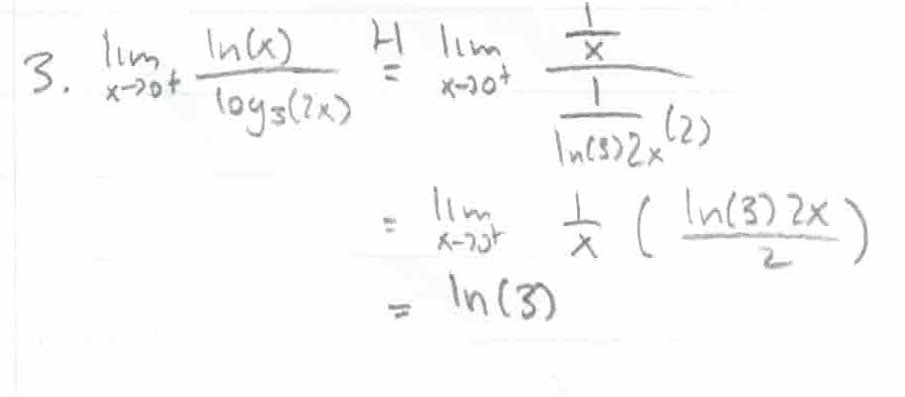 3. lim x→0⁺ ln(x) / log₃(2x) =ᴴ lim x→0⁺ (1/x) / (1/(ln(3)2x) (2))
= lim x→0⁺ 1/x ( ln(3) 2x / 2 )
= ln(3)